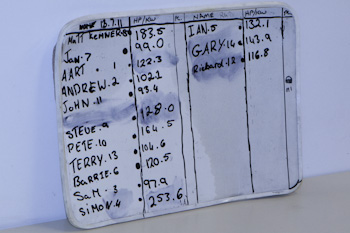 13.7.11 HP/KW PL NAME HP/KW PL
MATT 183.5 IAN.5 132.1
Jon.7 99.0 GARY.14 143.9
AART . 1 122.3 Richard.12 116.8
ANDREW.2 102.1
JOHN.11 93.4
128.0
STEVE.9 164.5
PETE.10 104.6
TERRY.13 120.5
BARRIE.6
SAM.3 97.9
SIMON.4 253.6